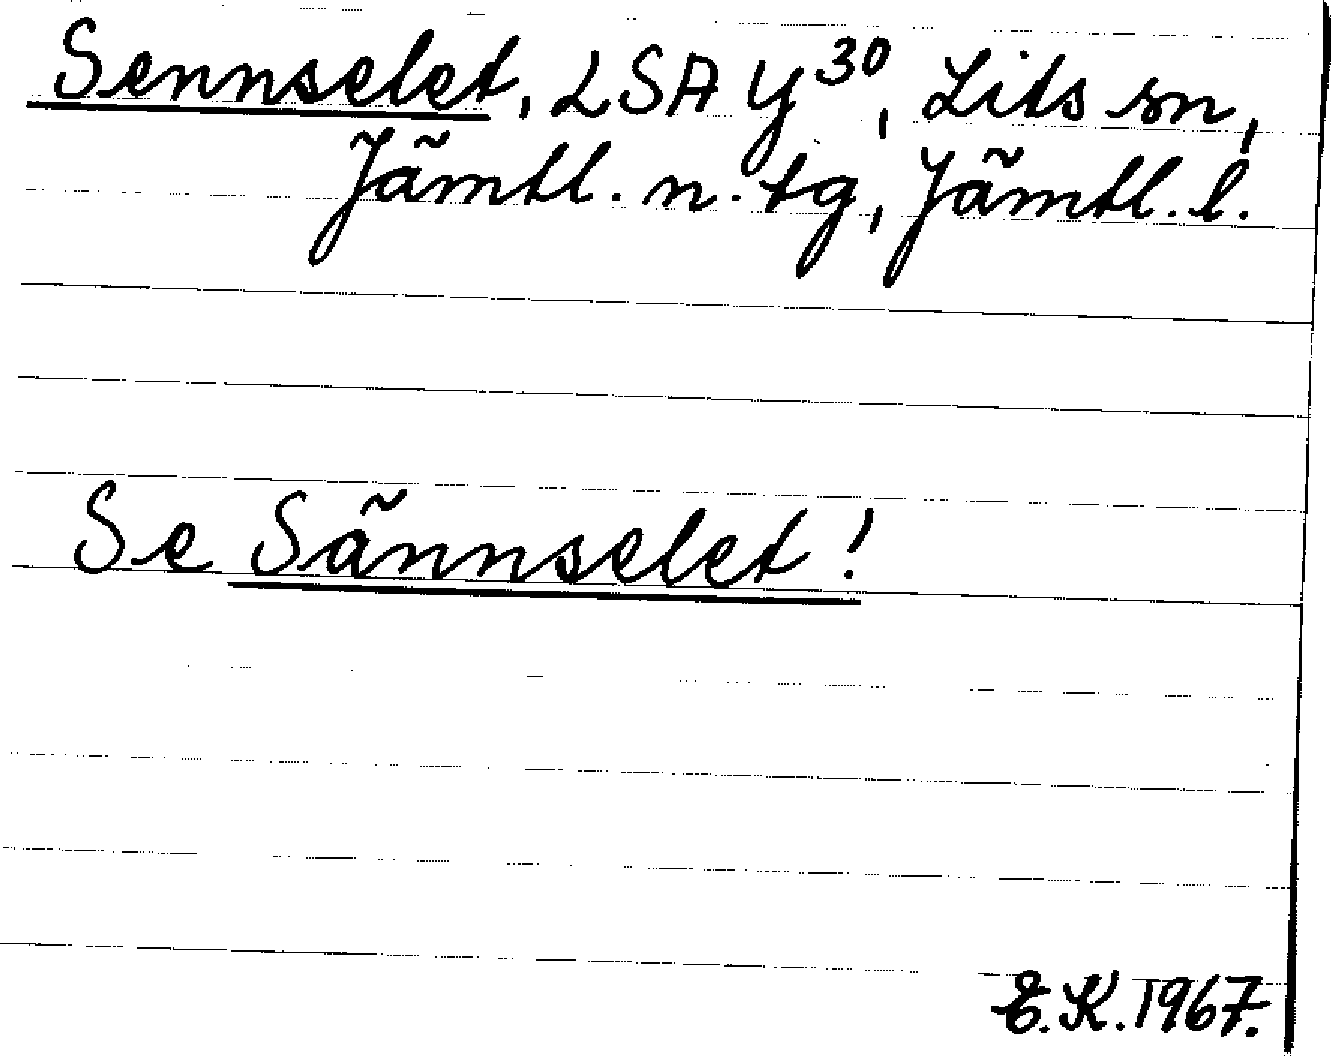 Sennselet, LSA Y30, Lits sn,
Jämtl. n. tg, Jämtl. l.
Se Sännselet!
E.K. 1967.